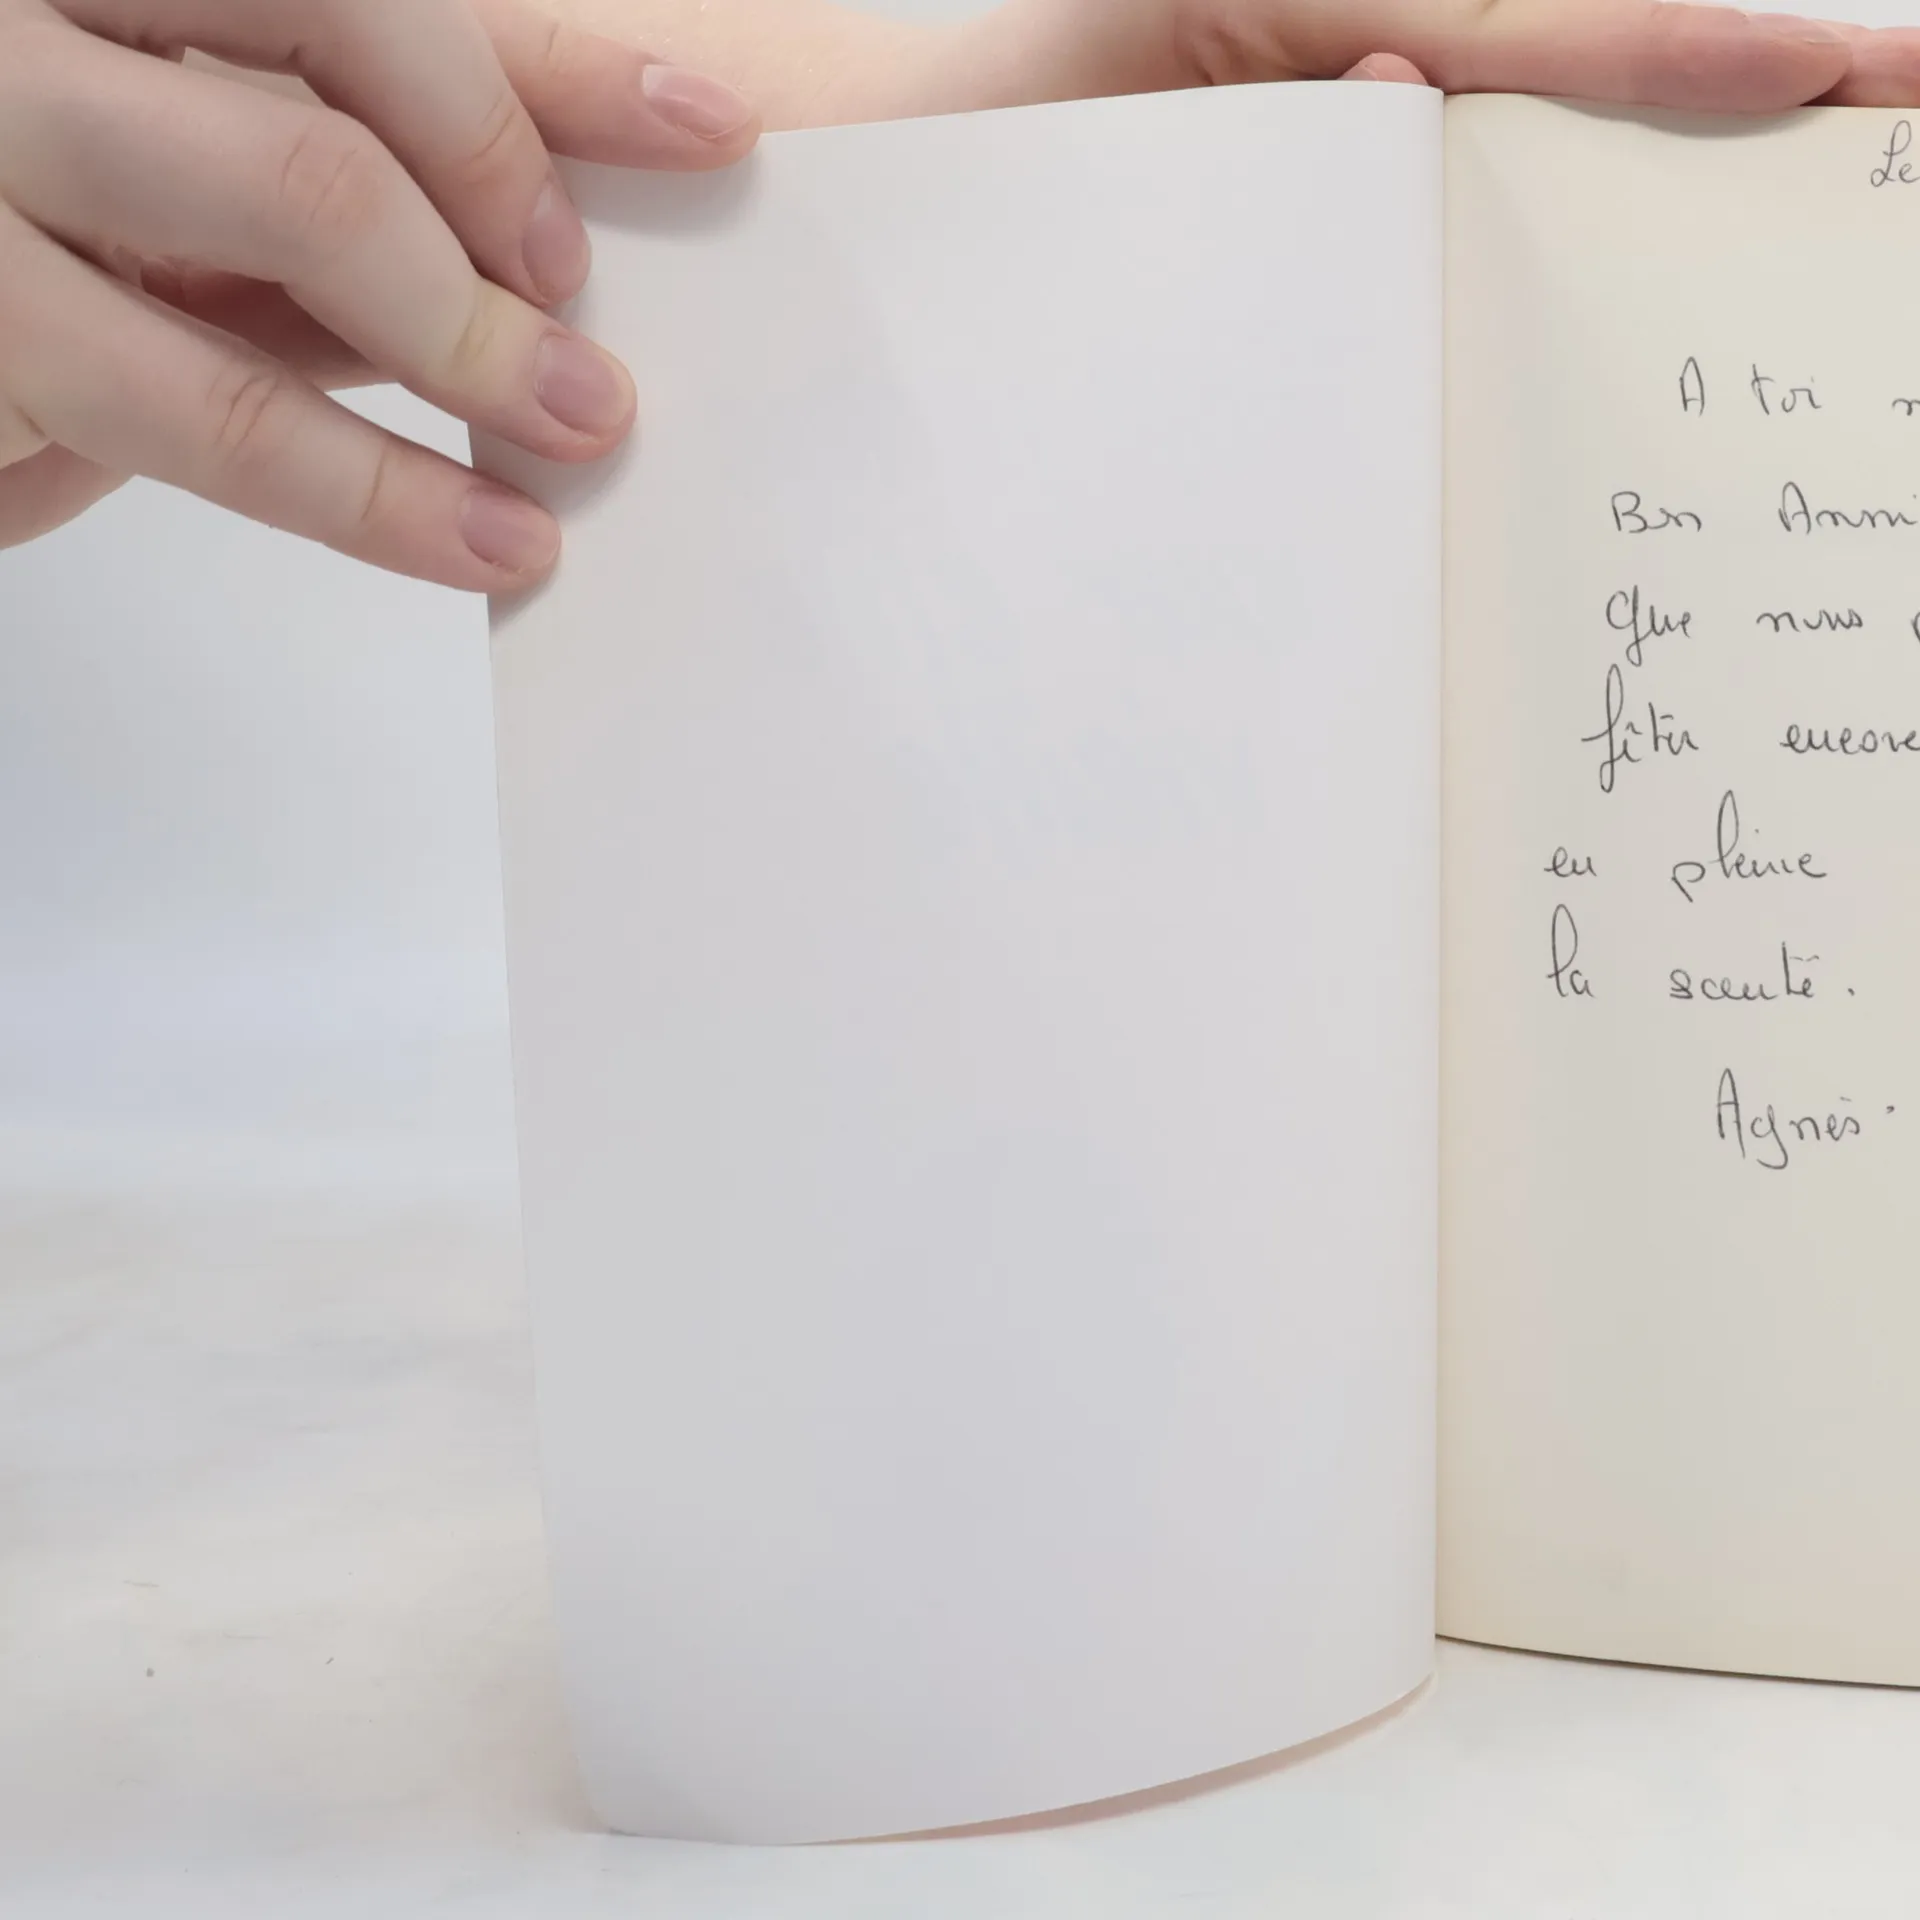 Le
A toi
Bon Anni
Que nous
fêter encore
en pleine
la santé.
Agnès.